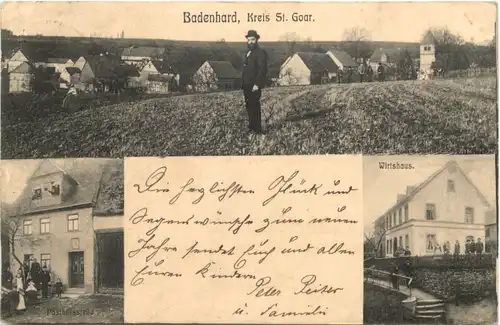 Badenhard, Kreis St. Goar.
Wirtshaus.
Die herzlichsten Glück und
Segenswünsche zum neuen
Jahre sendet Euch und allen
Euren Kindern
Peter
u. Familie